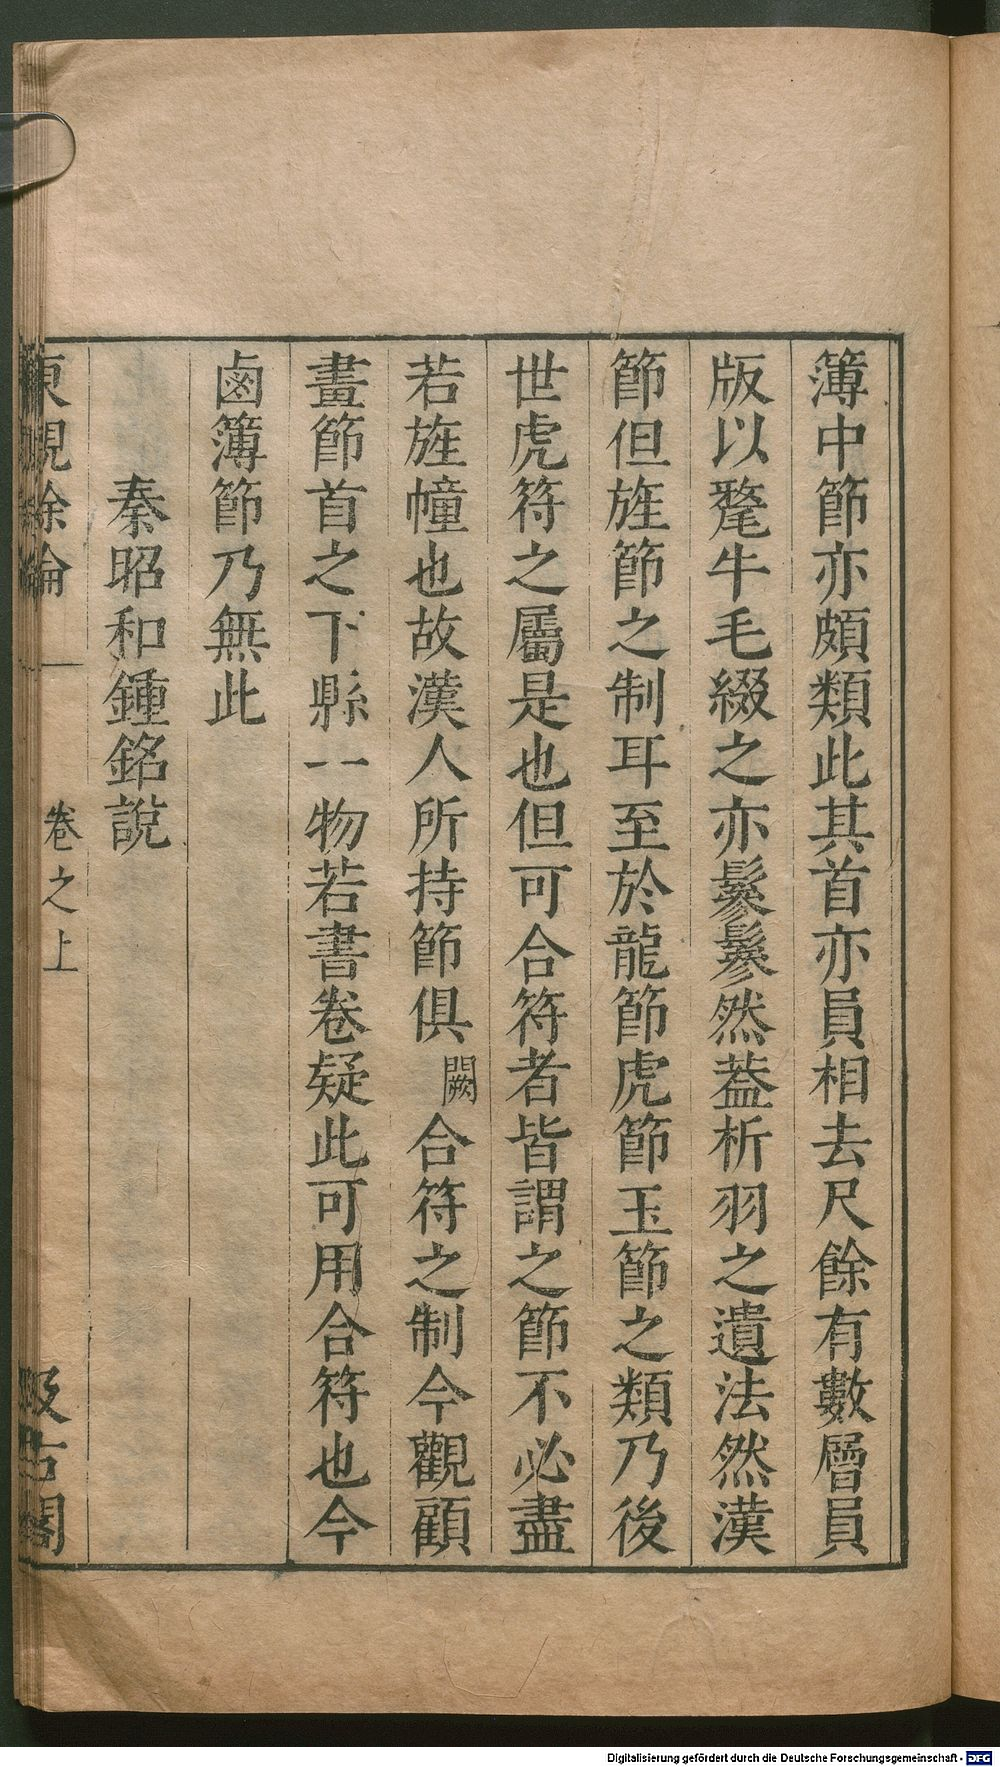 簿中節亦頗類此其首亦員相去尺餘有數層員
版以氂牛毛綴之亦鬖鬖然葢析羽之遺法然漢
節但旌節之制耳至於龍節虎節玉節之類乃後
世虎符之屬是也但可合符者皆謂之節不必盡
若旌幢也故漢人所持節俱闕合符之制今觀顧
畫節首之下縣一物若書卷疑此可用合符也今
鹵簿節乃無此
秦昭和鍾銘說
東觀餘論 卷之上 汲古閣
Digitalisierung gefördert durch die Deutsche Forschungsgemeinschaft - DFG